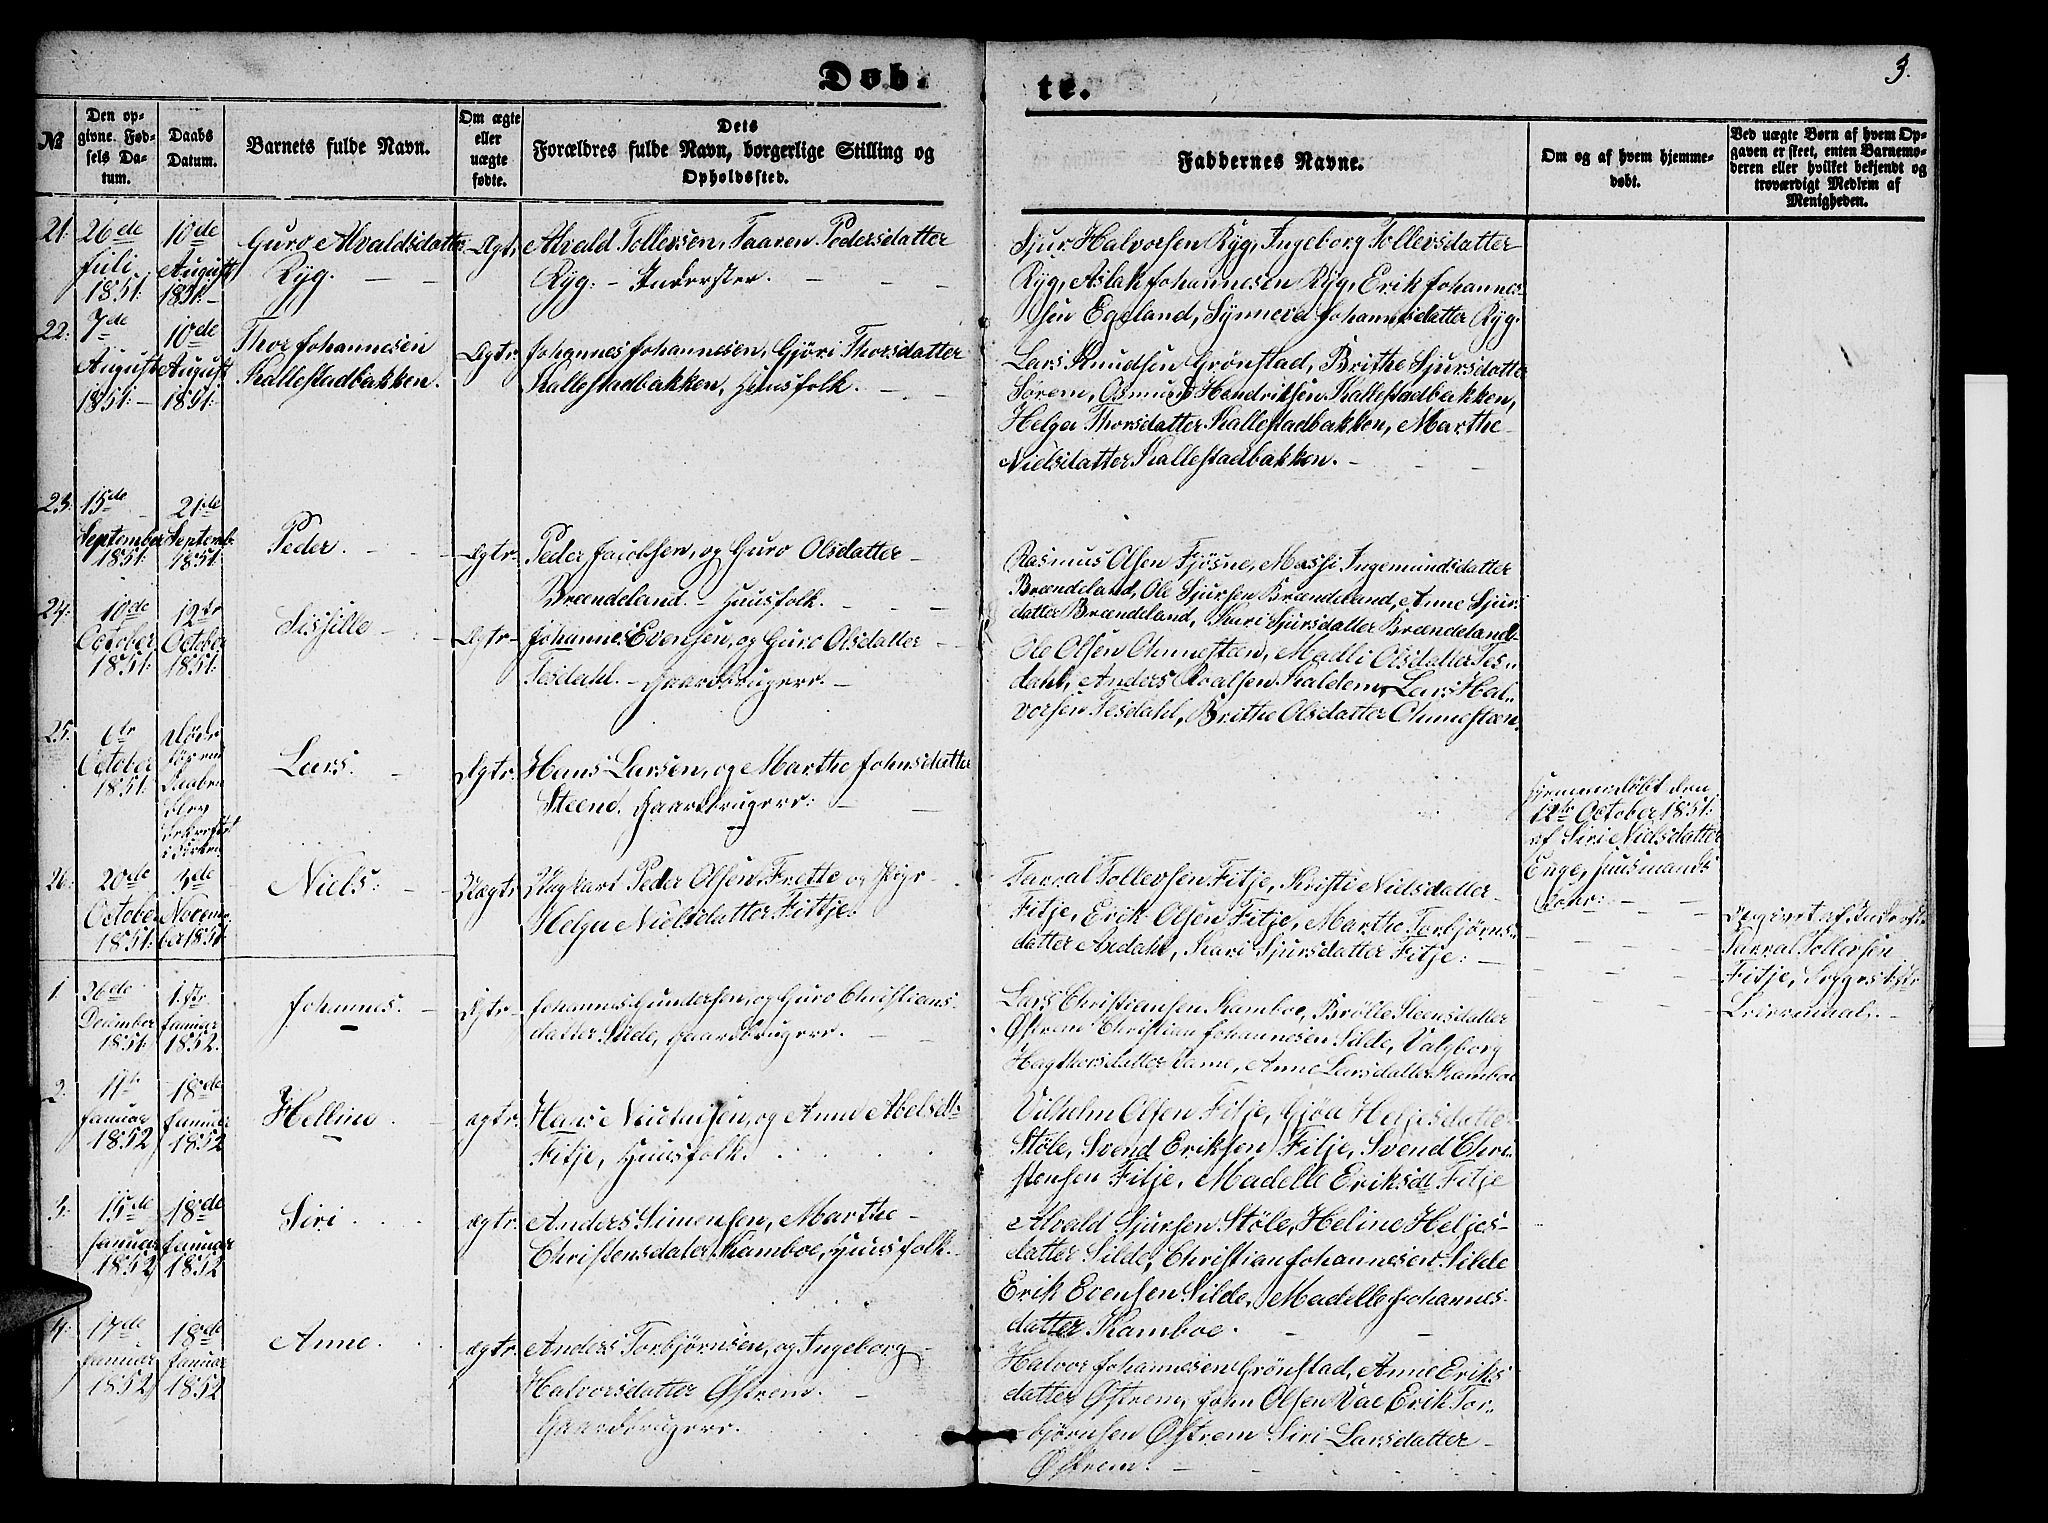 Døb-
te.
3.
№
Den op-
givne Fød-
sels Da-
tum.
Daabs
Datum.
Barnets fulde Navn.
Om ægte
eller
uægte
fødte.
Dets
Forældres fulde Navn, borgerlige Stilling og
Opholdssted.
Faddernes Navne.
Om og af hvem hjemme-
døbt.
Ved uægte Børn af hvem Op-
gaven er skeet, enten Barnemo-
deren eller hvilket bekjendt og
troværdigt Medlem af
Menigheden.
21.
26de
Juli
1851.
10de
August
1851.
Guro Alvaldsdatter
Ryg.
Ægtr.
Alvald Tollevsen, Taaren Pedersdatter
Ryg. - Inderster.
Sjur Halvorsen Ryg, Ingeborg Tollevsdatter
Ryg, Aslak Johannesen Ryg, Erik Johannes-
sen Egeland, Synneva Johannisdatter Ryg.
22.
7de
August
1851.
10de
August
1851.
Thor Johannesen
Skallestadbakken.
Ægtr.
Johannes Johannesen, Gjøri Thorsdatter
Skallestadbakken, Huusfolk.
Lars Knudsen Grønstad, Brithe Sjursdatter
Søren, Osmund Hendriksen Skallestadbakken,
Helga Thorsdatter Skallestadbakken, Marthe
Nielsdatter Skallestadbakken.
23.
15de
September
1851.
21de
Septemb.
1851.
Peder.
Ægtr.
Peder Jacobsen, og Guro Olsdatter
Brændeland. - Huusfolk.
Rasmus Olsen Fjøsne, Massi Ingemundsdatter
Brændeland, Ole Sjursen Brændeland, Anne Sjurs
datter Brændeland, Kari Sjursdatter Brændeland.
24.
10de
October
1851.
12te
October
1851.
Sissille
Ægtr.
Johannes Evensen, og Guro Olsdatter
Tesdahl. - Gaardbrugere.
Ole Olsen Ohmesteen, Madli Olsdatter Tes-
dahl, Anders Roalsen Kaldem, Lars Hal-
vorsen Tesdahl, Brithe Olsdatter Ohmesteen.
25.
6te
October
1851.
Døde
før end
Daaben
blev
bekræftet
i Kirken
Lars.
Ægtr.
Hans Larsen, og Marthe Johnsdatter
Steend. Gaardbrugere.
Hjemmedøbt den
12te October 1851.
af Siri Nielsdatter
Enge, Huusmands
Kone.
26.
20de
October
1851.
3de
Novem-
ber 1851.
Niels.
Uægtr.
Ungkarl Peder Olsen Frette og Pige
Helga Nielsdatter Fittje.
Tarval Tollevsen Fitje, Kristi Nielsdatter
Fitje, Erik Olsen Fitje, Marthe Torbjørns-
datter Aadahl, Kari Sjursdatter Fitje.
Angivet af Inderste
Tarval Tollevsen
Fitje,
1.
26de
December
1851.
1ste
Januar
1852.
Johannes.
Ægtr.
Johannes Gundersen, og Guro Christians-
datter Silde, Gaardbrugere.
Lars Christiansen Kamboe, Brølle Steensdatter
Østrem Christian Johannesen Silde, Valgborg
Hagthorsdatter Ramne, Anne Larsdatter Kamboe
2.
11te
Januar
1852
18de
Januar
1852
Helline
ægtr.
Hans Nicolaisen, og Anne Abelsdtr
Fitje, Huusfolk.
Vilhelm Olsen Fitje, Gjøri Heljesdatter
Støle, Svend Eriksen Fitje, Svend Chri-
stensen Fitje, Madelle Eriksdr Fitje
3.
15de
Januar
1852
18de
Januar
1852
Siri
ægtr.
Anders Simensen, Marthe
Christensdater Kamboe, Huusfolk.
Alvald Sjursen Støle, Heline Heljes-
datter Silde, Christian Johannesen Silde
Erik Evensen Silde, Madelle Johannes-
datter Kamboe.
4.
17de
Januar
1852
18de
Januar
1852
Anne
ægtr.
Anders Torbjørnsen, og Ingeborg
Halvorsdatter Østrem.
Gaardbrugere.
Halvor Johannesen Grønstad, Anne Eriks-
datter Østrem, John Olsen Vae Erik Tor-
bjørnsen Østrem Siri Larsdatter
Østrem.